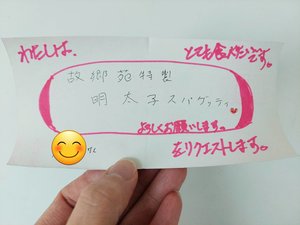 わたしは、
故郷苑特製
明太子スパゲッティ
よろしくお願いします。
をリクエストします。
とても食べたいです。